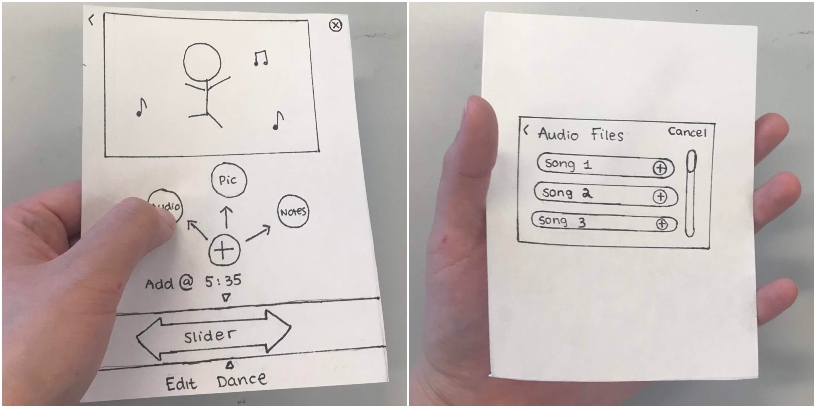 <
Pic
Audio
Notes
+
Add @ 5:35
Slider
Edit Dance
< Audio Files Cancel
song 1 +
song 2 +
song 3 +